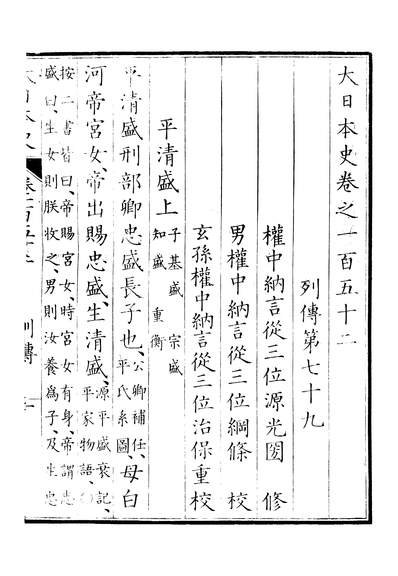 大日本史卷之一百五十二
列傳第七十九
權中納言從三位源光圀 修
男權中納言從三位綱條 校
玄孫權中納言從三位治保重校
平清盛上 子基盛 宗盛
知盛 重衡
平清盛刑部卿忠盛長子也、公卿補任、
平氏系圖、母白
河帝宮女、帝出賜忠盛、生清盛、源平盛衰記、
平家物語、〇
按二書皆曰、帝賜宮女、時宮女有身、帝謂忠
盛曰、生女則朕收之、男則汝養爲子、及生忠
大日本史 卷之一百五十二 列傳